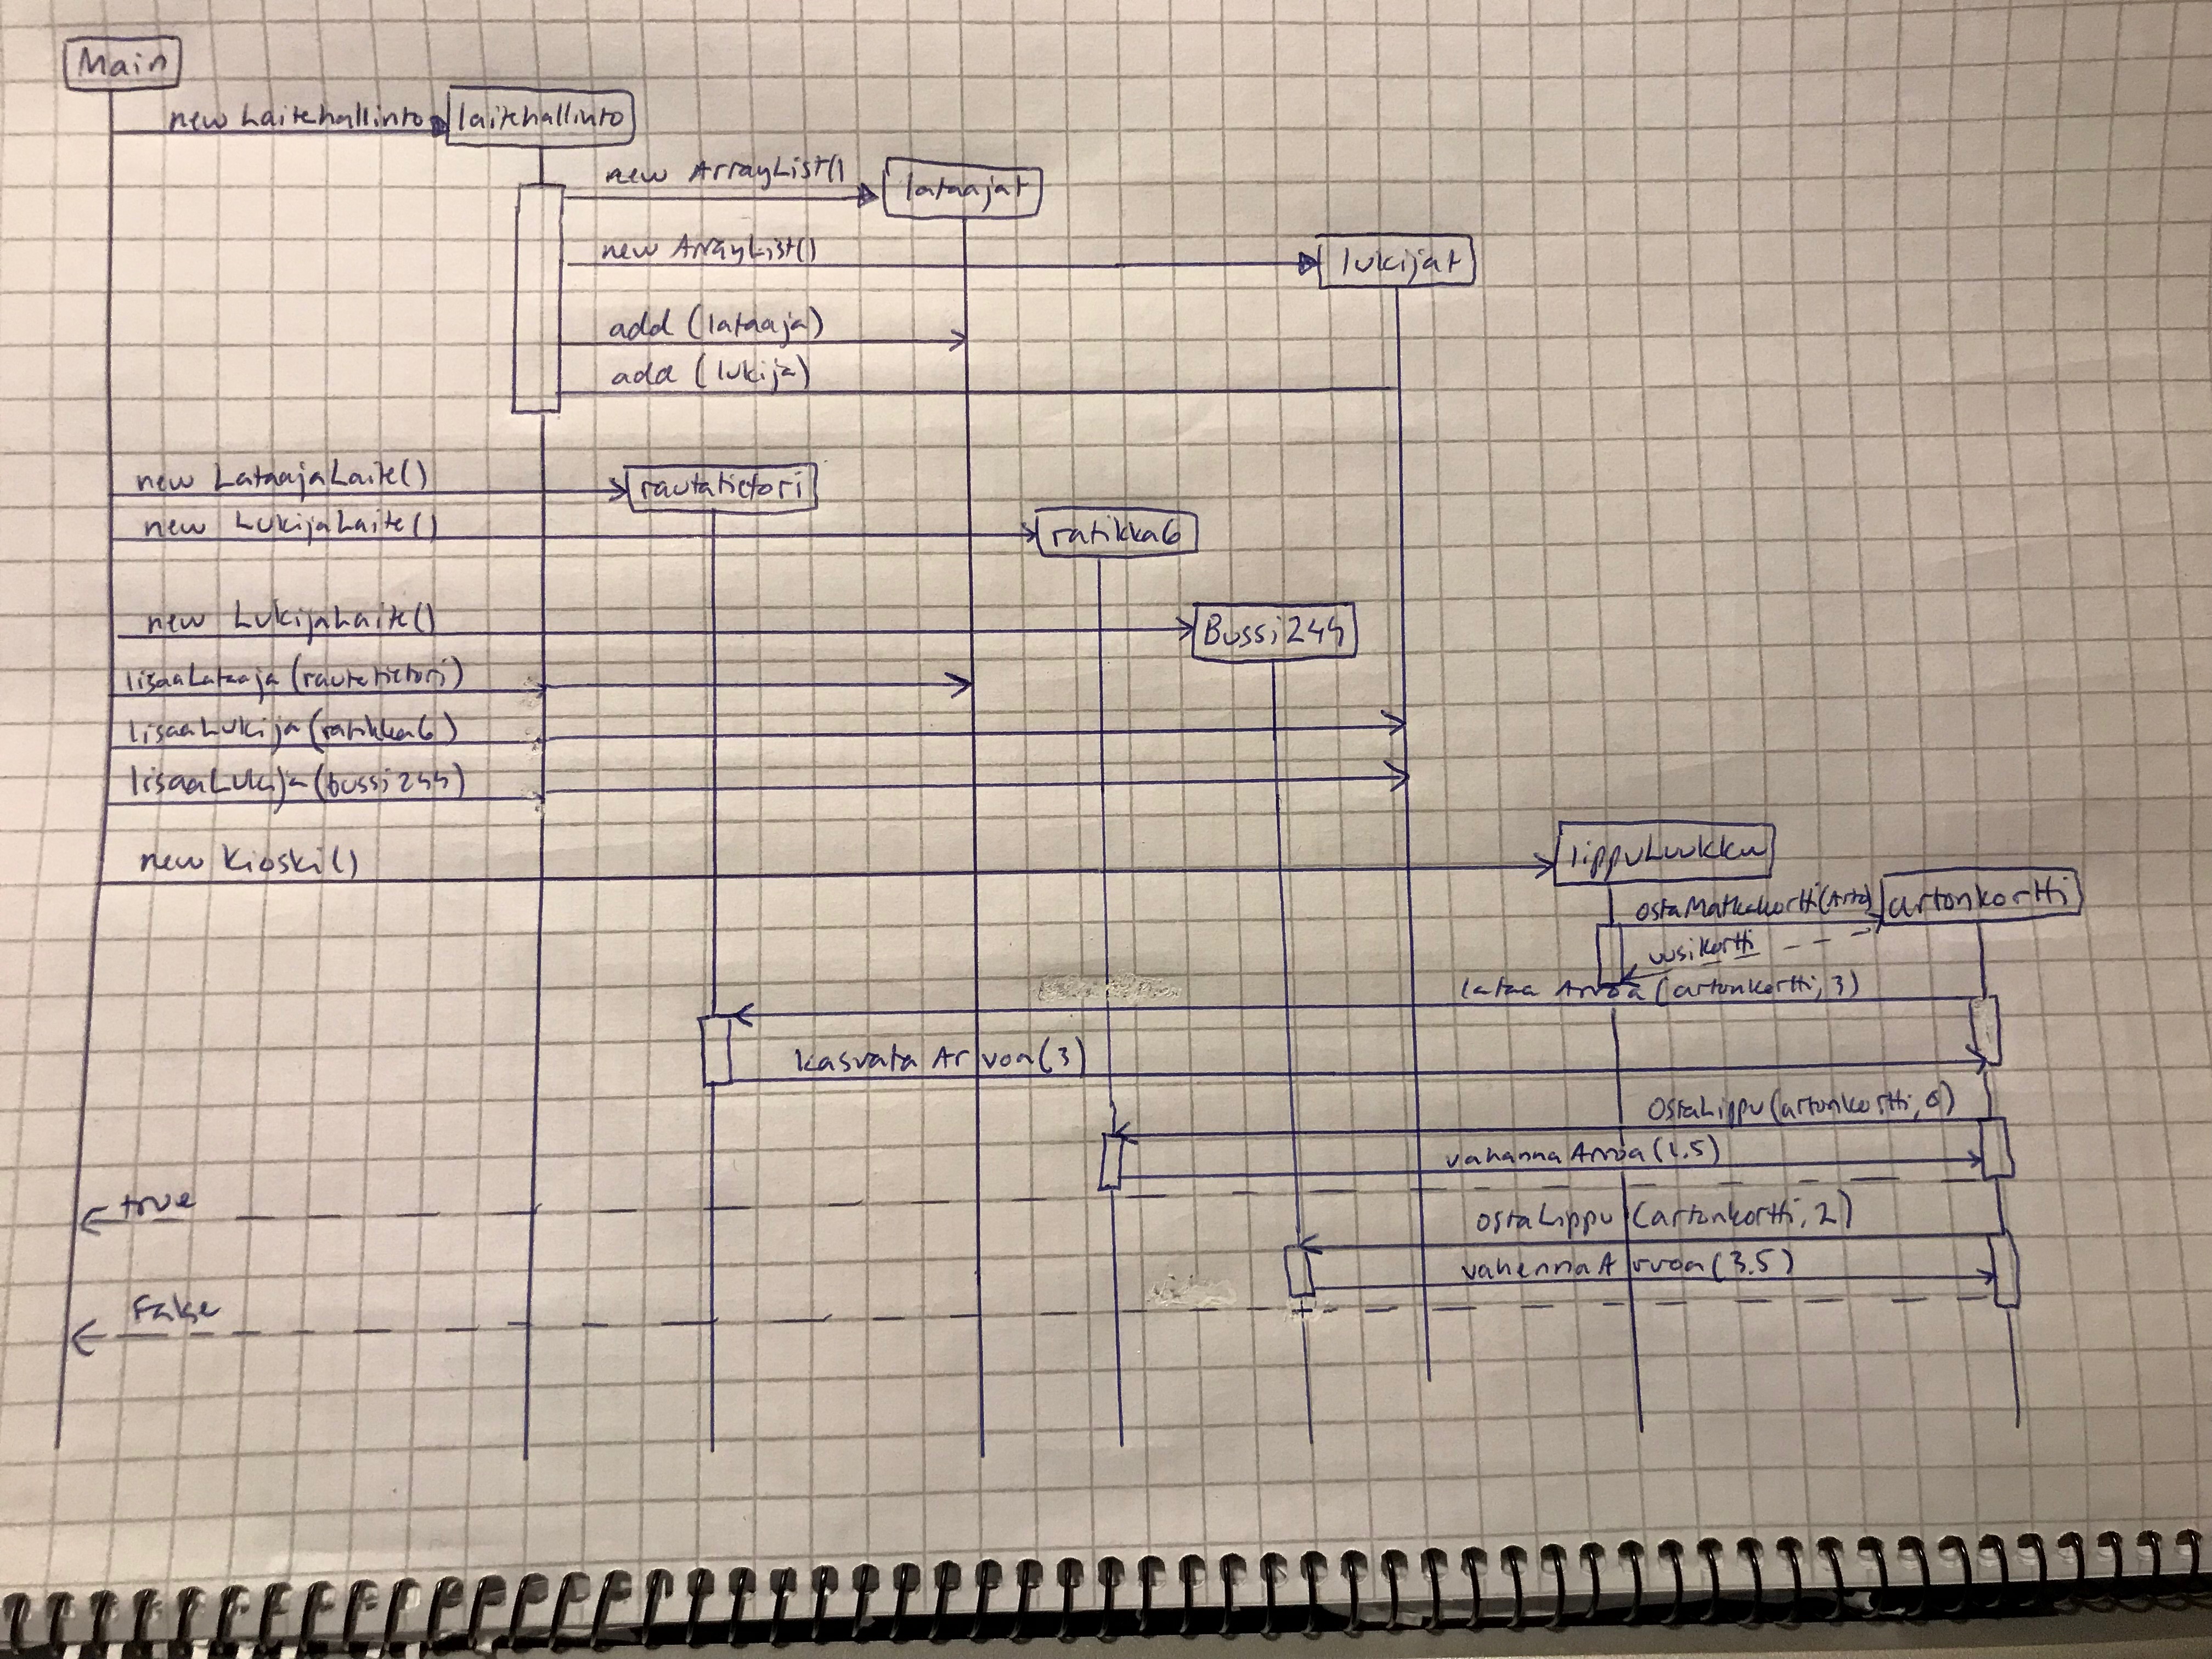 Main
new Laitehallinto
laitehallinto
new ArrayList()
lataajat
new ArrayList()
lukijat
add (lataaja)
add (lukija)
new LataajaLaite()
rautatietori
new LukijaLaite()
ratikka6
new LukijaLaite()
Bussi244
lisaaLataaja (rautatietori)
lisaaLukija (ratikka6)
lisaaLukija (bussi244)
new Kioski()
lippuLuukku
ostaMatkakortti(Arto)
artonkortti
uusikortti
lataa Arvoa (artonkortti, 3)
kasvata Arvoa(3)
OstaLippu(artonkortti, 0)
vahenna Arvoa (1.5)
true
ostaLippu (artonkortti, 2)
vahenna Arvoa (3.5)
False